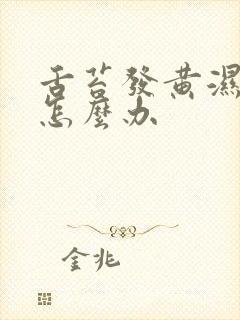 舌苔發黃濕
怎麼办
金兆